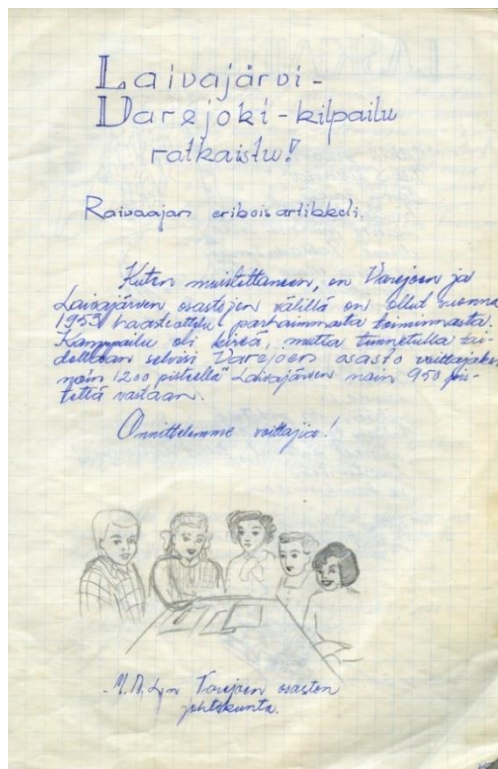 Laivajärvi -
Varejoki - kilpailu
ratkaistu!
Raivaajan erikoisartikkeli.
Kuten muistettaneen, on Varejoen ja
Laivajärven osastojen välillä on ollut vuonna
1955 haastattelu parhaimmasta toiminnasta.
Kamppailu oli kireä, mutta tunnetulla tai-
dollaan selvisi Varejoen osasto voittajaksi
näin 1200 pisteellä Laivajärven näin 950 pis-
tettä vastaan.
Onnittelemme voittajia!
Varejoen osaston
johtokunta.